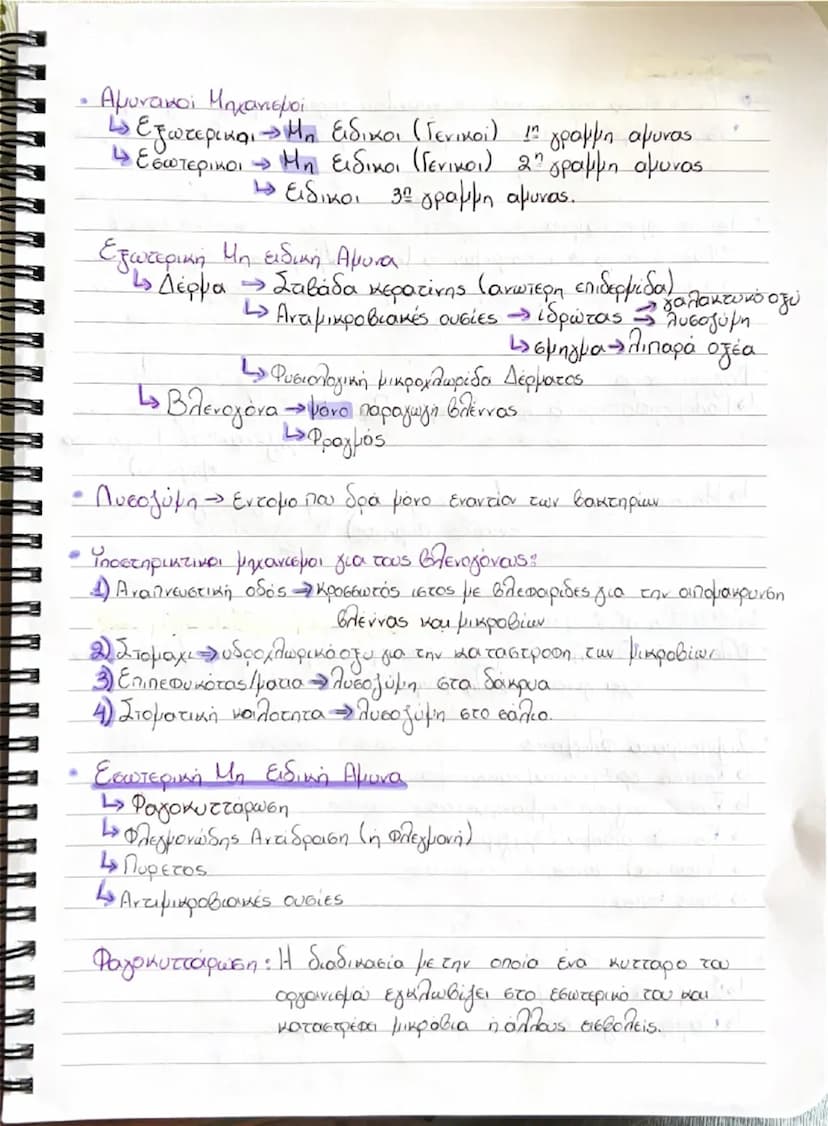 • Αμυνακοί Μηχανισμοί
↳ Εξωτερικοι → Μη Ειδικοι (Γενικοί) 1η γραμμη αμυνας
↳ Εσωτερικοι → Μη Ειδικοι (Γενικοι) 2η γραμμη αμυνας
↳ Ειδικοι 3η γραμμη αμυνας.
Εξωτερική Μη ειδική Αμυνα
↳ Δέρμα → Στιβάδα κερατίνης (ανωτερη επιδερμίδα)
↳ Αντιμικροβιακές ουσιες → ιδρώτας → γαλακτικό οξύ
→ λυσοζύμη
↳ σμηγμα → λιπαρά οξέα
↳ Φυσιολογική μικροχλωρίδα Δέρματος
↳ Βλενογόνα → μόνο παραγωγή βλέννας
↳ Φραγμός
• Λυσοζύμη → Ενζυμο που δρά μόνο εναντίον των βακτηρίων
• Υποστηρικτικοι μηχανισμοι για τους βλενογόνους:
1) Αναπνευστική οδός → κροσσωτός ιστος με βλεφαριδες για την απομακρυνση
βλεννας και μικροβίων
2) Στομάχι → υδροχλωρικό οξυ για την καταστροφη των μικροβίων
3) Επιπεφυκότας/ματια → λυσοζύμη στα δάκρυα
4) Στοματική κοιλοτητα → λυσοζύμη στο σάλιο.
• Εσωτερική Μη Ειδική Αμυνα
↳ Φαγοκυττάρωση
↳ Φλεγμονώδης Αντίδραση (ή Φλεγμονή)
↳ Πυρετος
↳ Αντιμικροβιακές ουσίες
Φαγοκυττάρωση: Η διαδικασία με την οποία ένα κυτταρο του
οργανισμού εγκλωβίζει στο εσωτερικό του και
καταστρέφει μικρόβια ή άλλους εισβολείς.